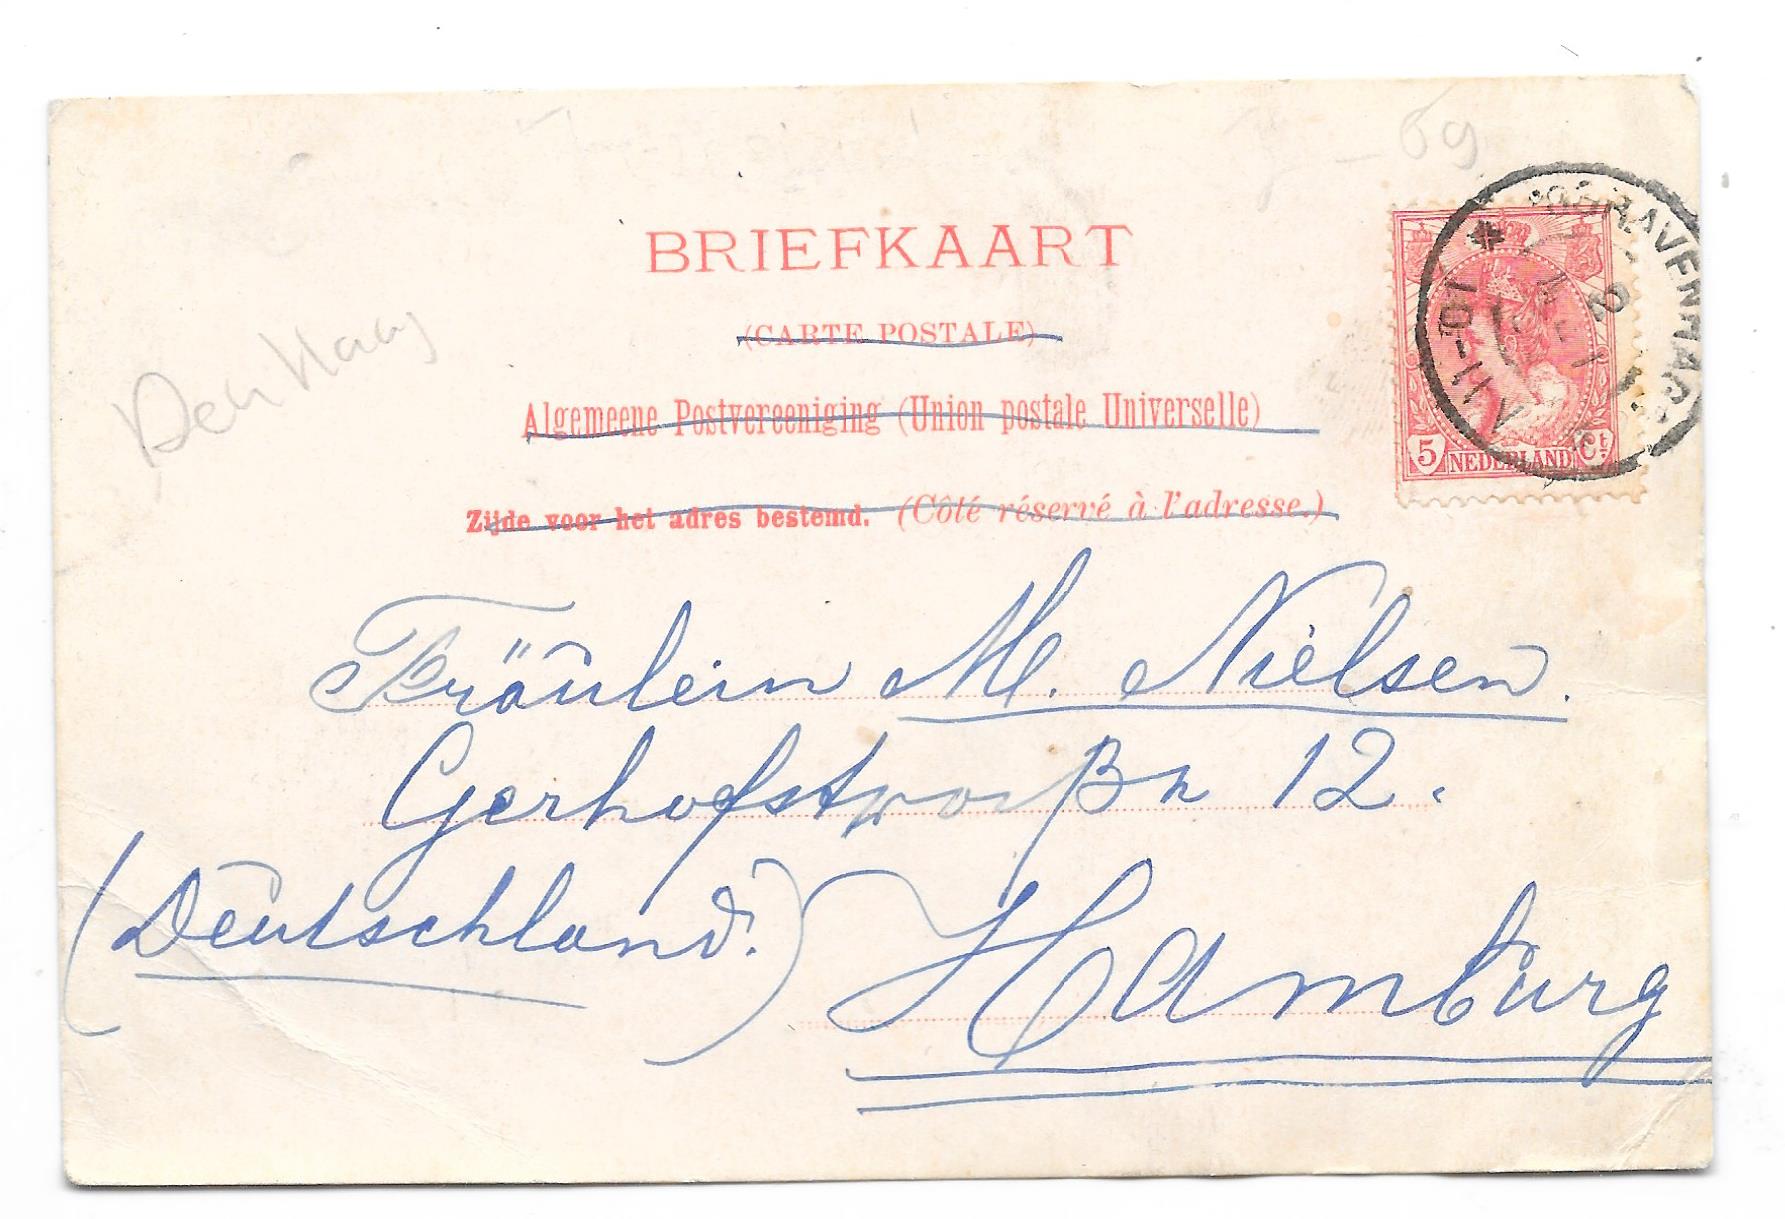 69
BRIEFKAART
(CARTE POSTALE)
Algemeene Postvereeniging (Union postale Universelle)
Zijde voor het adres bestemd. (Côté réservé à l'adresse.)
Den Haag
5 NEDERLAND Ct
'SGRAVENHAGE
Fräulein M. Nielsen.
Gerhofstraße 12.
(Deutschland.) Hamburg